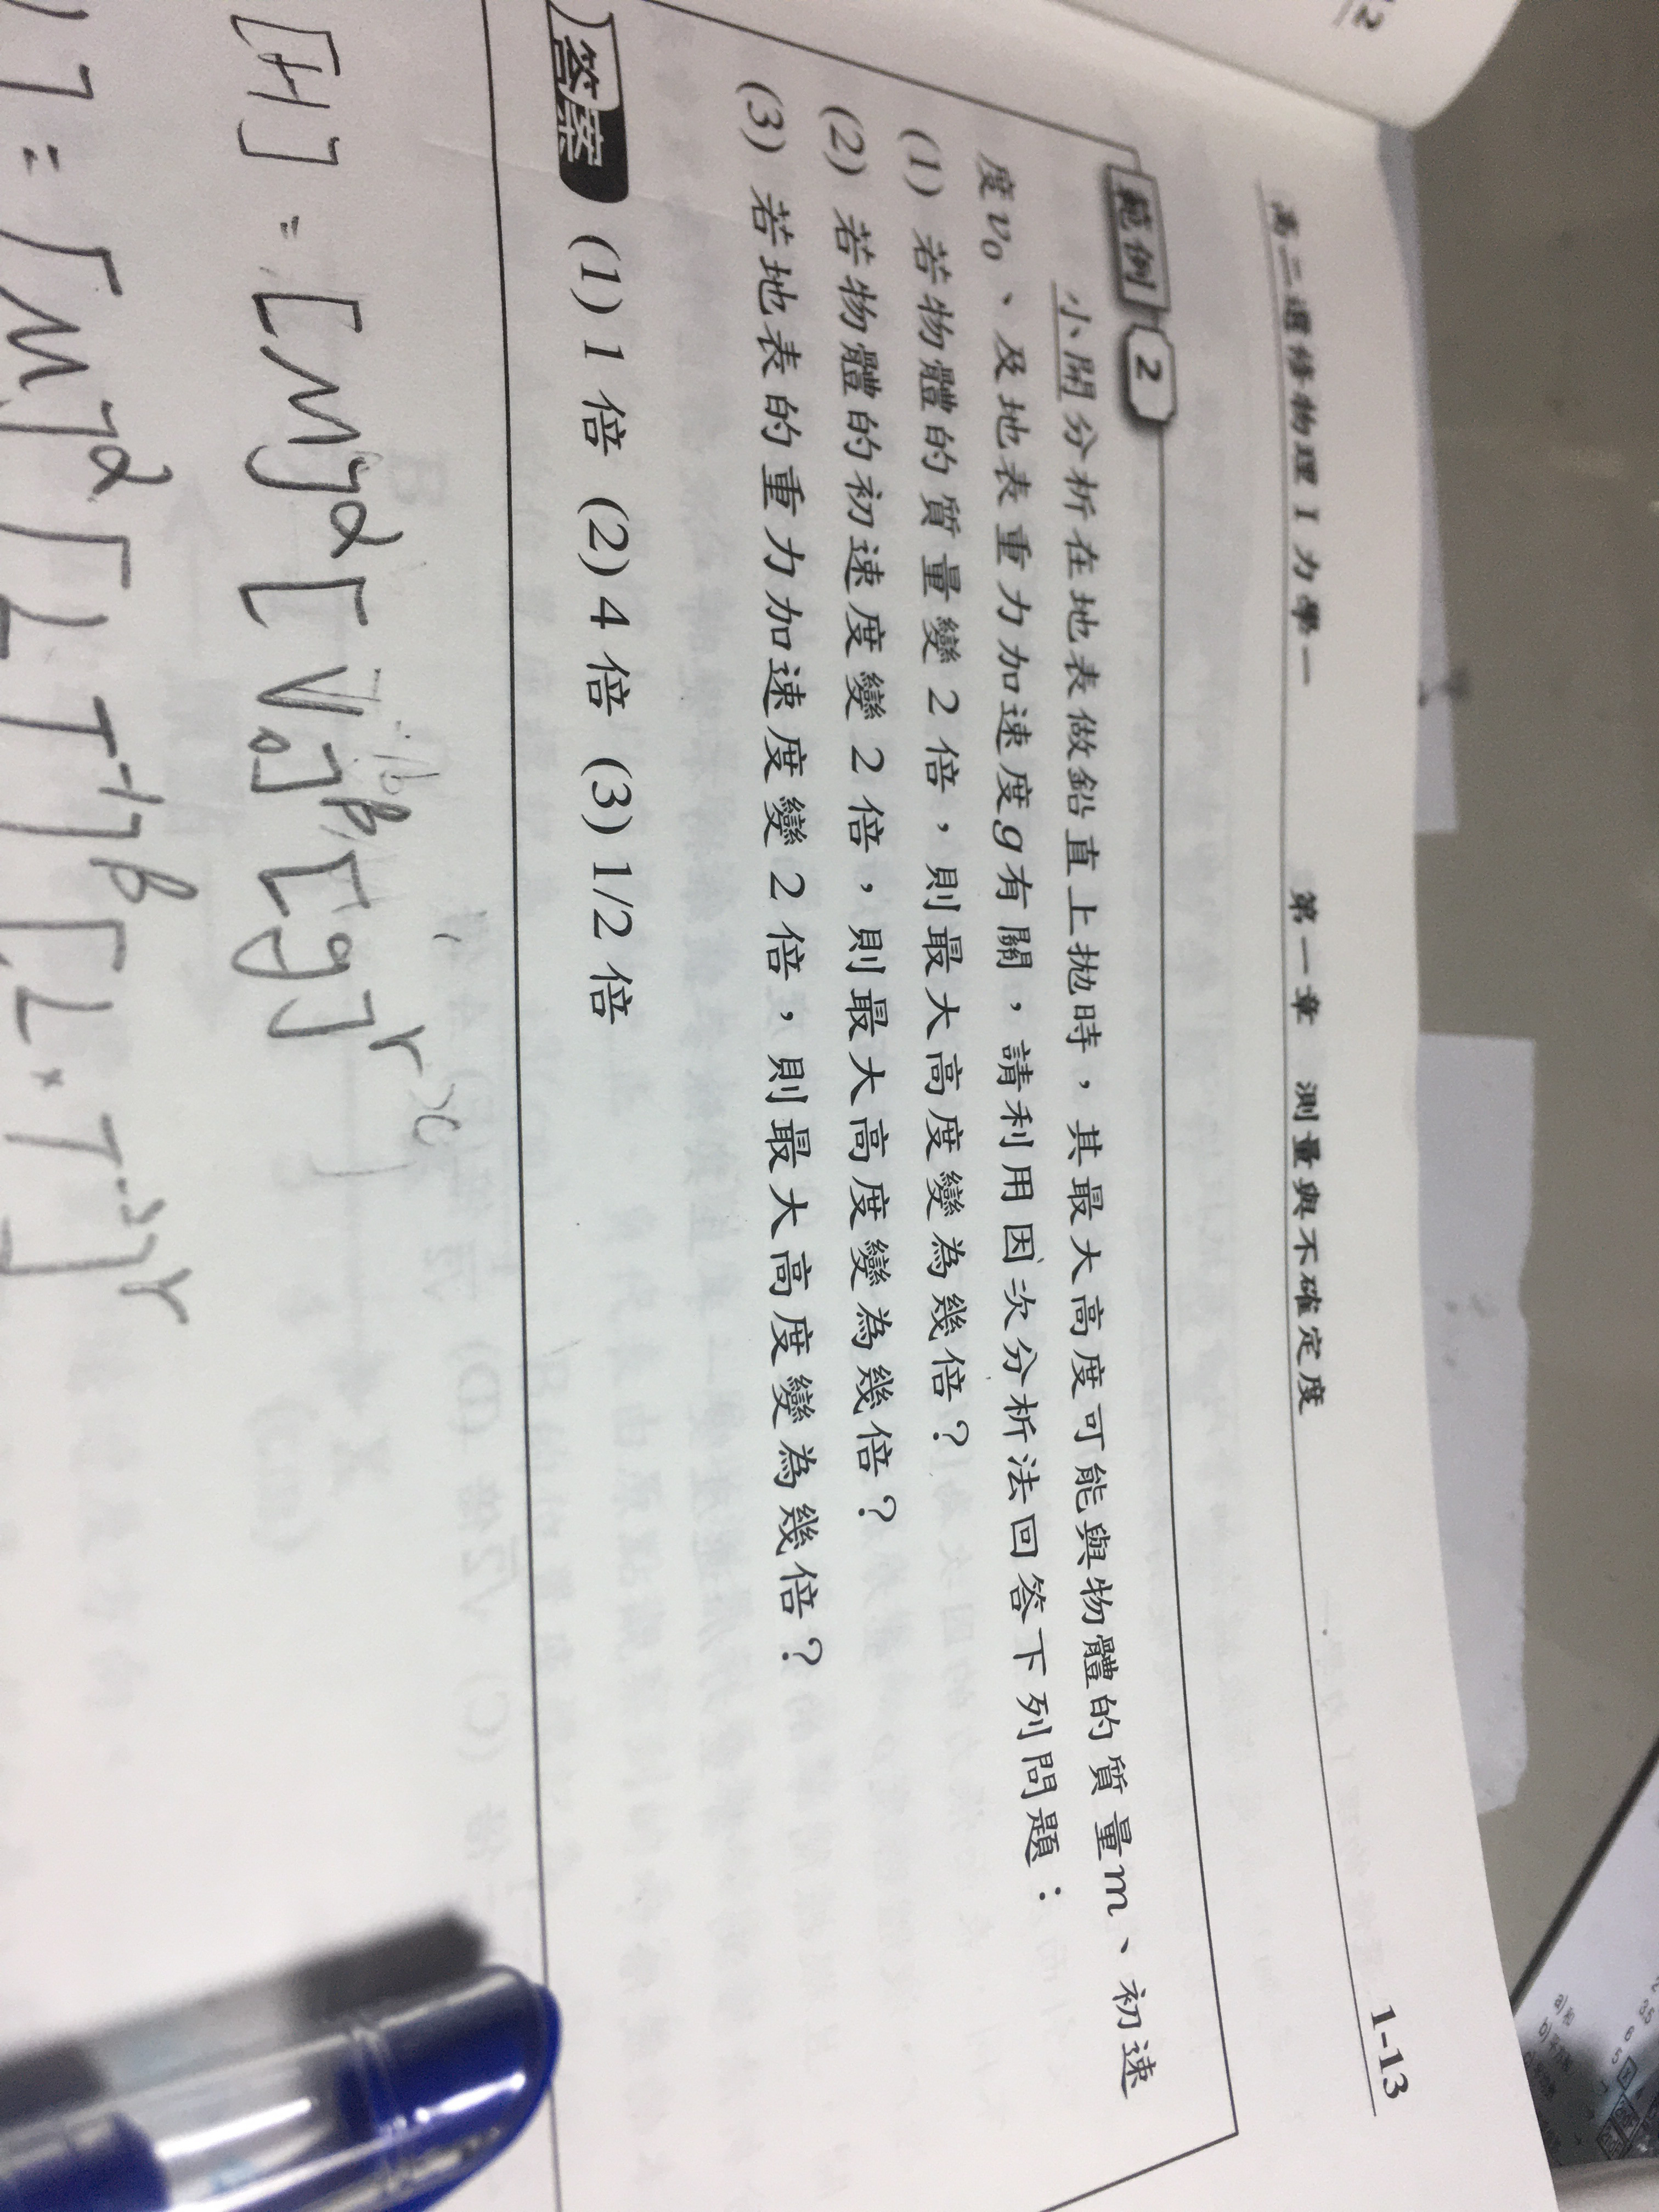 高二選修物理 I 力學一 第一章 測量與不確定度 1-13
範例 2
小開分析在地表做鉛直上拋時，其最大高度可能與物體的質量m、初速
度v₀、及地表重力加速度g有關，請利用因次分析法回答下列問題：
(1) 若物體的質量變 2 倍，則最大高度變為幾倍？
(2) 若物體的初速度變 2 倍，則最大高度變為幾倍？
(3) 若地表的重力加速度變 2 倍，則最大高度變為幾倍？
答案 (1) 1 倍 (2) 4 倍 (3) 1/2 倍
[H] = [M]^α [V₀]^β [g]^r
] = [M]^α [L T⁻¹]^β [L × T⁻²]^r